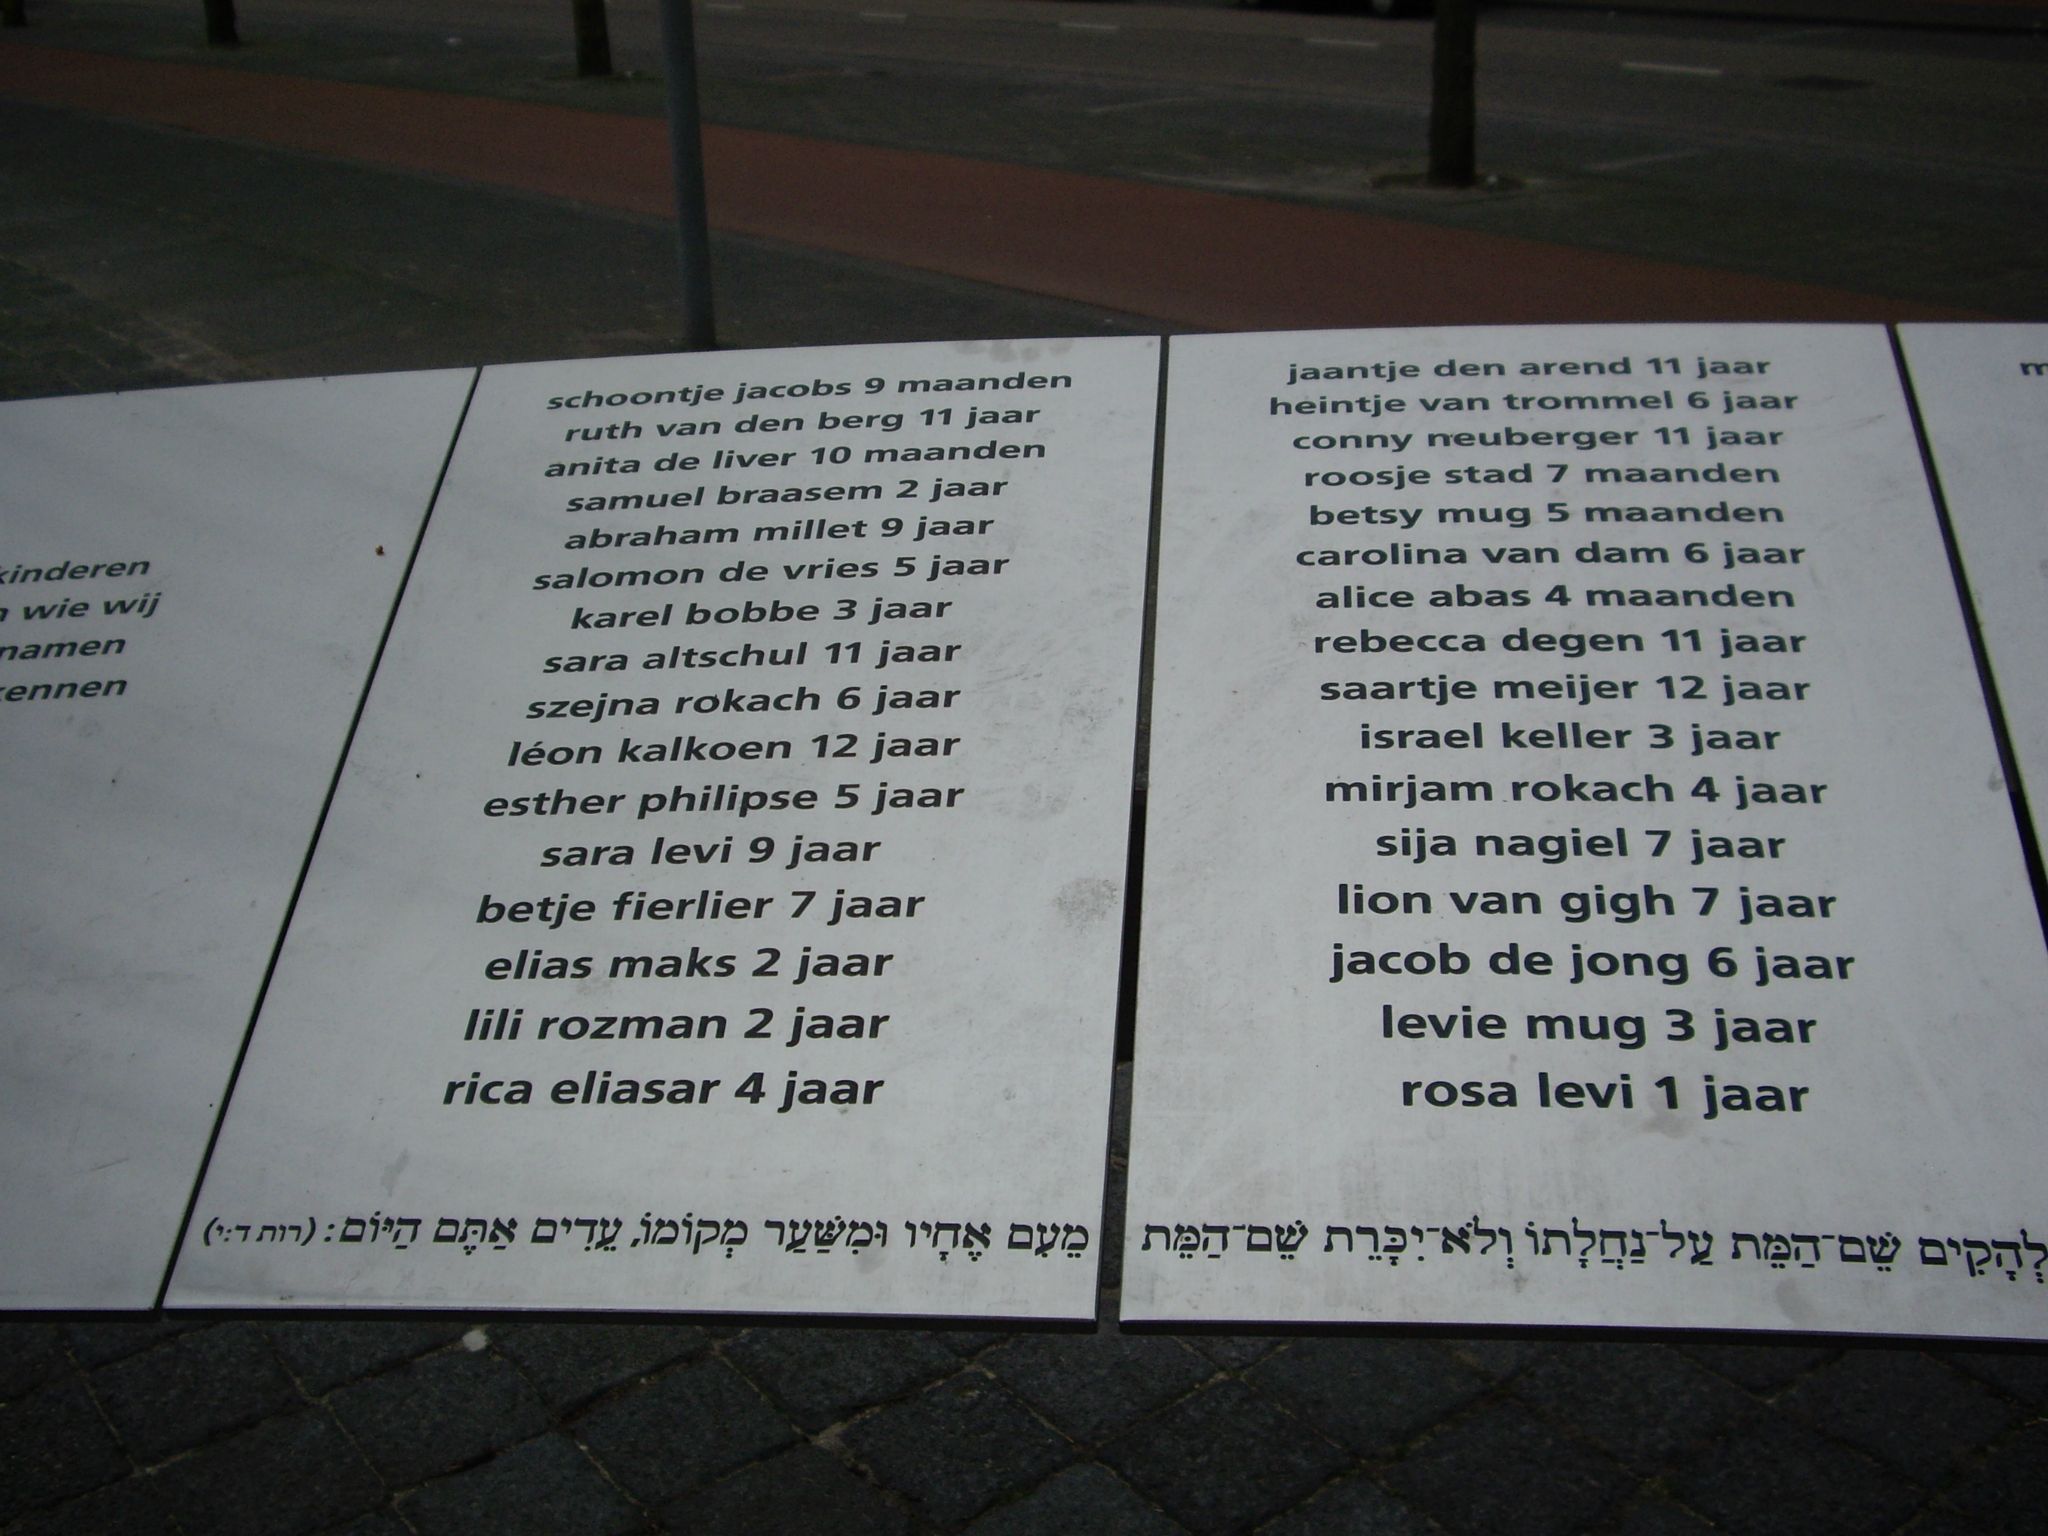 kinderen
wie wij
namen
kennen
schoontje jacobs 9 maanden
ruth van den berg 11 jaar
anita de liver 10 maanden
samuel braasem 2 jaar
abraham millet 9 jaar
salomon de vries 5 jaar
karel bobbe 3 jaar
sara altschul 11 jaar
szejna rokach 6 jaar
léon kalkoen 12 jaar
esther philipse 5 jaar
sara levi 9 jaar
betje fierlier 7 jaar
elias maks 2 jaar
lili rozman 2 jaar
rica eliasar 4 jaar
מֵעִם אֶחָיו וּמִשַּׁעַר מְקוֹמוֹ, עֵדִים אַתֶּם הַיּוֹם: (רות ד:י)
jaantje den arend 11 jaar
heintje van trommel 6 jaar
conny neuberger 11 jaar
roosje stad 7 maanden
betsy mug 5 maanden
carolina van dam 6 jaar
alice abas 4 maanden
rebecca degen 11 jaar
saartje meijer 12 jaar
israel keller 3 jaar
mirjam rokach 4 jaar
sija nagiel 7 jaar
lion van gigh 7 jaar
jacob de jong 6 jaar
levie mug 3 jaar
rosa levi 1 jaar
לְהָקִים שֵׁם־הַמֵּת עַל־נַחֲלָתוֹ וְלֹא־יִכָּרֵת שֵׁם־הַמֵּת